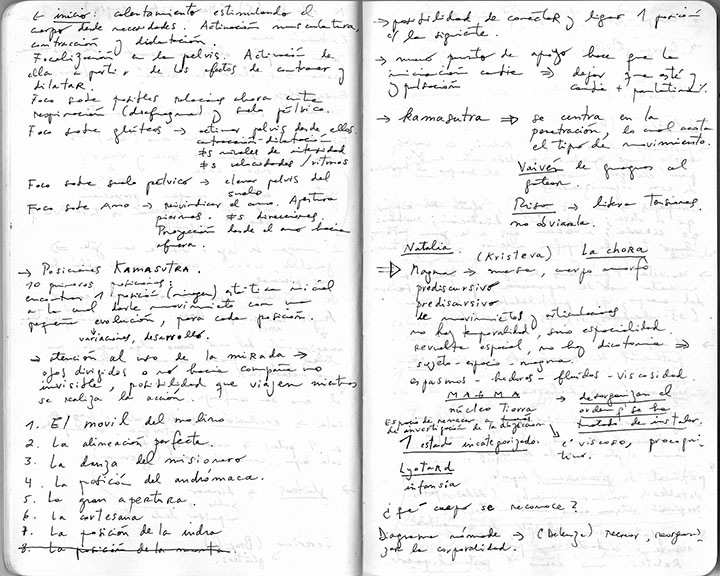 inicio: calentamiento estimulando el
cuerpo desde necesidades. Activación musculatura,
contracción y dilatación.
Focalización en la pelvis. Activación de
ella a partir de los efectos de contraer y
dilatar.
Foco sobre posibles relaciones ahora entre
respiración (diafragma) y suelo pélvico.
Foco sobre glúteos → activar pelvis desde ellos.
contracción-dilatación
≠s niveles de intensidad
≠s velocidades / ritmos
Foco sobre suelo pélvico → clavar pelvis del
suelo
Foco sobre Ano → reivindicar el ano. Apertura
piernas. ≠s direcciones.
Proyección desde el ano hacia
afuera.
→ Posiciones KAMASUTRA.
10 primeras posiciones:
encontrar 1 posición (imagen) estática inicial
a la cual darle movimiento con una
pequeña evolución, para cada posición.
variaciones, desarrollo.
→ atención al uso de la mirada →
ojos dirigidos o no hacia compañero
invisible, posibilidad que viajen mientras
se realiza la acción.
1. El movil del molino
2. La alineación perfecta.
3. La danza del misionero
4. La posición del andrómaca.
5. La gran apertura.
6. La cortesana
7. La posición de la indra
8. La posición de la
→ posibilidad de conectar y ligar 1 posición
c/ la siguiente.
→ nuevo punto de apoyo hace que la
iniciación cambie ⇒ dejar que esté y
y pulsación cambie +
→ kamasutra ⇒ se centra en la
penetración, lo cual acota
el tipo de movimiento.
Vaivén de
Risa → libera tensiones.
no obviarla.
Natalia. (Kristeva) La chora
⇒ Magma → masa, cuerpo amorfo
prediscursivo
prediscursivo
de movimientos y articulaciones
no hay temporalidad, sino espacialidad.
revuelta espacial, no hay dicotomía ⇒
sujeto-espacio-magma.
espasmos - hedores - fluidos - viscosidad.
MAGMA → desorganizar el
núcleo Tierra orden q se ha
tratado de instalar.
Espacio de renacer a través
de investigación de la abyección
1 estado incategorizado. c' viscoso, precogni-
tivo.
Lyotard
infansia
¿qué cuerpo se reconoce?
Diagrama nómade → (Deleuze) recrear, reorgani-
zar la corporalidad.